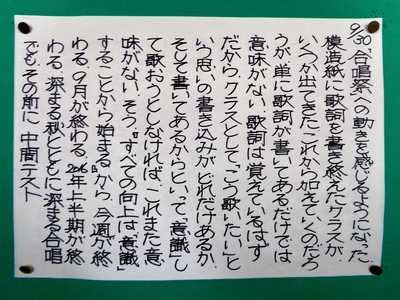 9/30 合唱祭への動きを感じるようになった。
模造紙に歌詞を書き終えたクラスが、
いくつか出てきた。これから加えていくのだろ
うが、単に歌詞が書いてあるだけでは
意味がない。歌詞は覚えているはず
だから。クラスとして、「こう歌いたい」と
いう思いの書き込みがどれだけあるか、
そして書いてあるからといって、「意識」し
て歌おうとしなければ、これまた意
味がない。そう、『すべての向上は、「意識」
することから始まる』から。今週が終
わる。9月が終わる。2016年上半期が終
わる。深まる秋とともに深まる合唱
でも、その前に、中間テスト